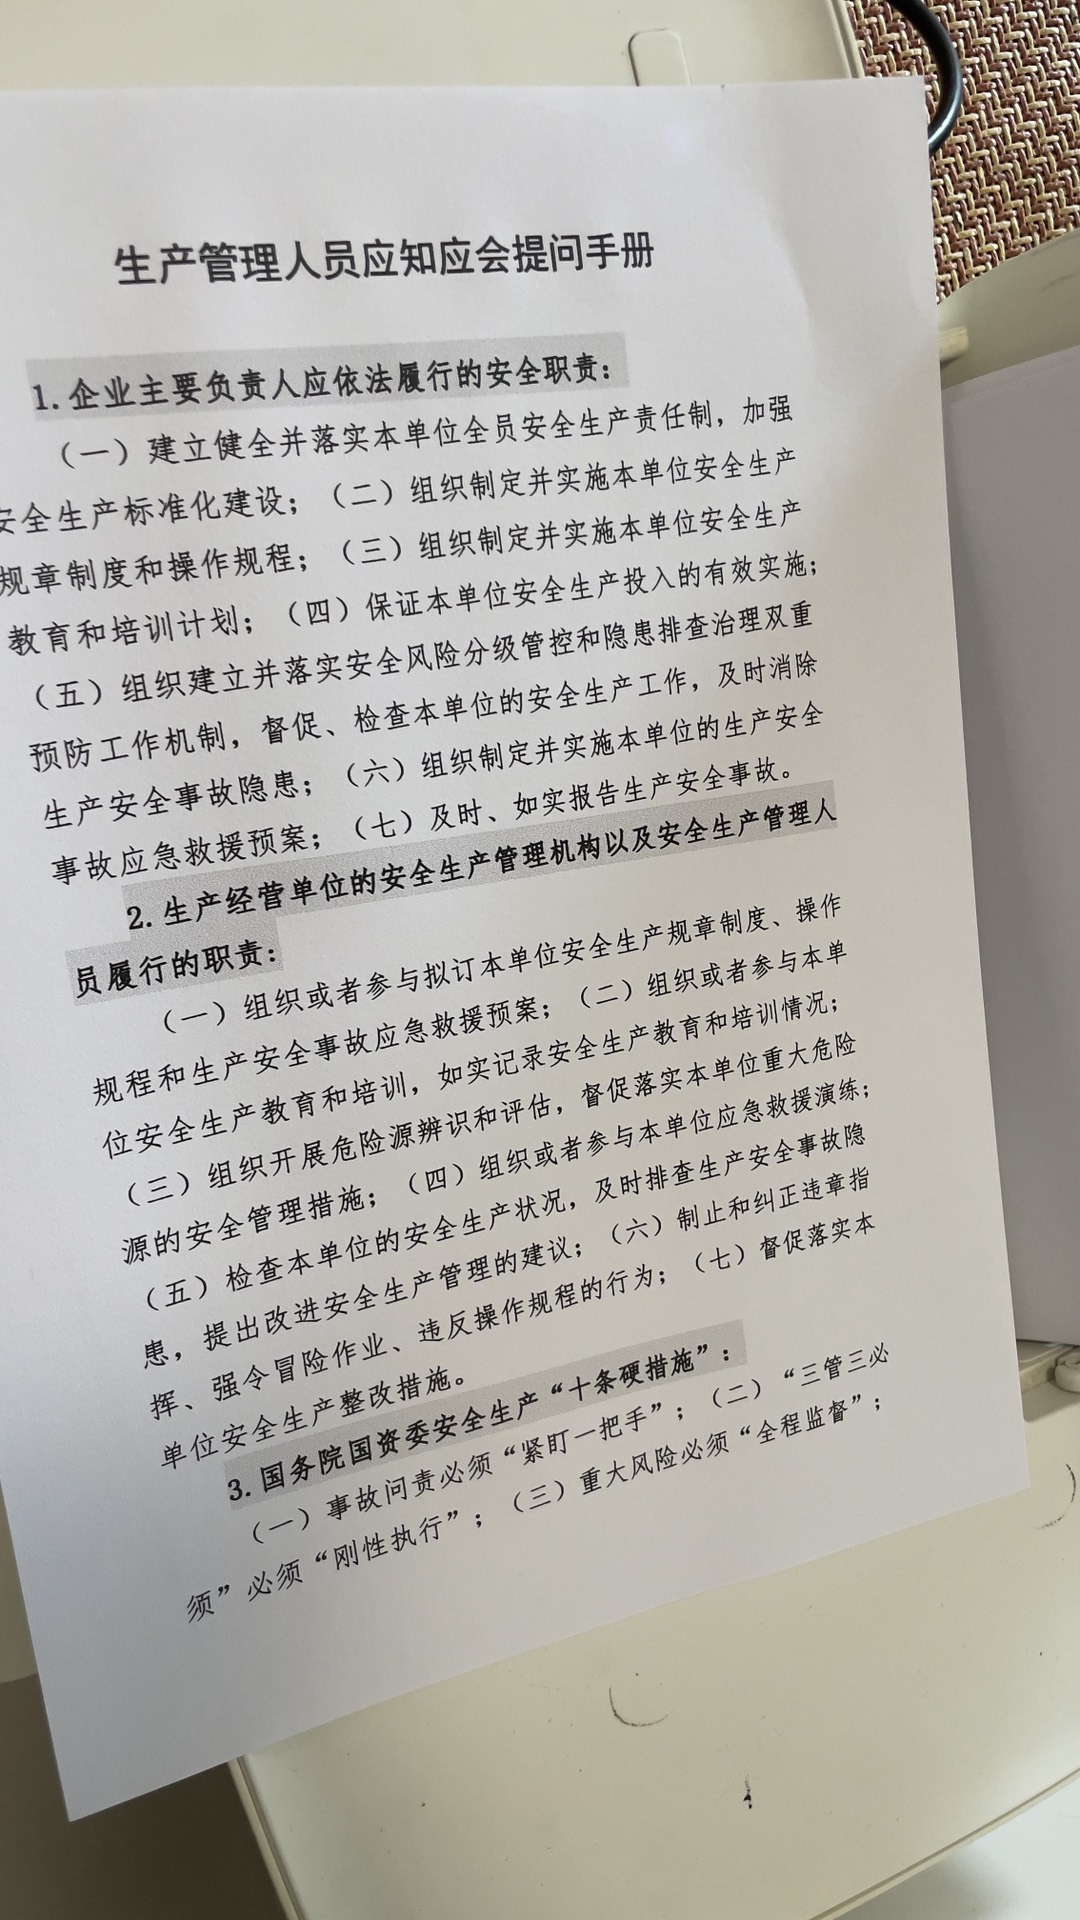 生产管理人员应知应会提问手册
1. 企业主要负责人应依法履行的安全职责：
（一）建立健全并落实本单位全员安全生产责任制，加强
安全生产标准化建设；（二）组织制定并实施本单位安全生产
规章制度和操作规程；（三）组织制定并实施本单位安全生产
教育和培训计划；（四）保证本单位安全生产投入的有效实施；
（五）组织建立并落实安全风险分级管控和隐患排查治理双重
预防工作机制，督促、检查本单位的安全生产工作，及时消除
生产安全事故隐患；（六）组织制定并实施本单位的生产安全
事故应急救援预案；（七）及时、如实报告生产安全事故。
2. 生产经营单位的安全生产管理机构以及安全生产管理人
员履行的职责：
（一）组织或者参与拟订本单位安全生产规章制度、操作
规程和生产安全事故应急救援预案；（二）组织或者参与本单
位安全生产教育和培训，如实记录安全生产教育和培训情况；
（三）组织开展危险源辨识和评估，督促落实本单位重大危险
源的安全管理措施；（四）组织或者参与本单位应急救援演练；
（五）检查本单位的安全生产状况，及时排查生产安全事故隐
患，提出改进安全生产管理的建议；（六）制止和纠正违章指
挥、强令冒险作业、违反操作规程的行为；（七）督促落实本
单位安全生产整改措施。
3. 国务院国资委安全生产“十条硬措施”：
（一）事故问责必须“紧盯一把手”；（二）“三管三必
须”必须“刚性执行”；（三）重大风险必须“全程监督”；